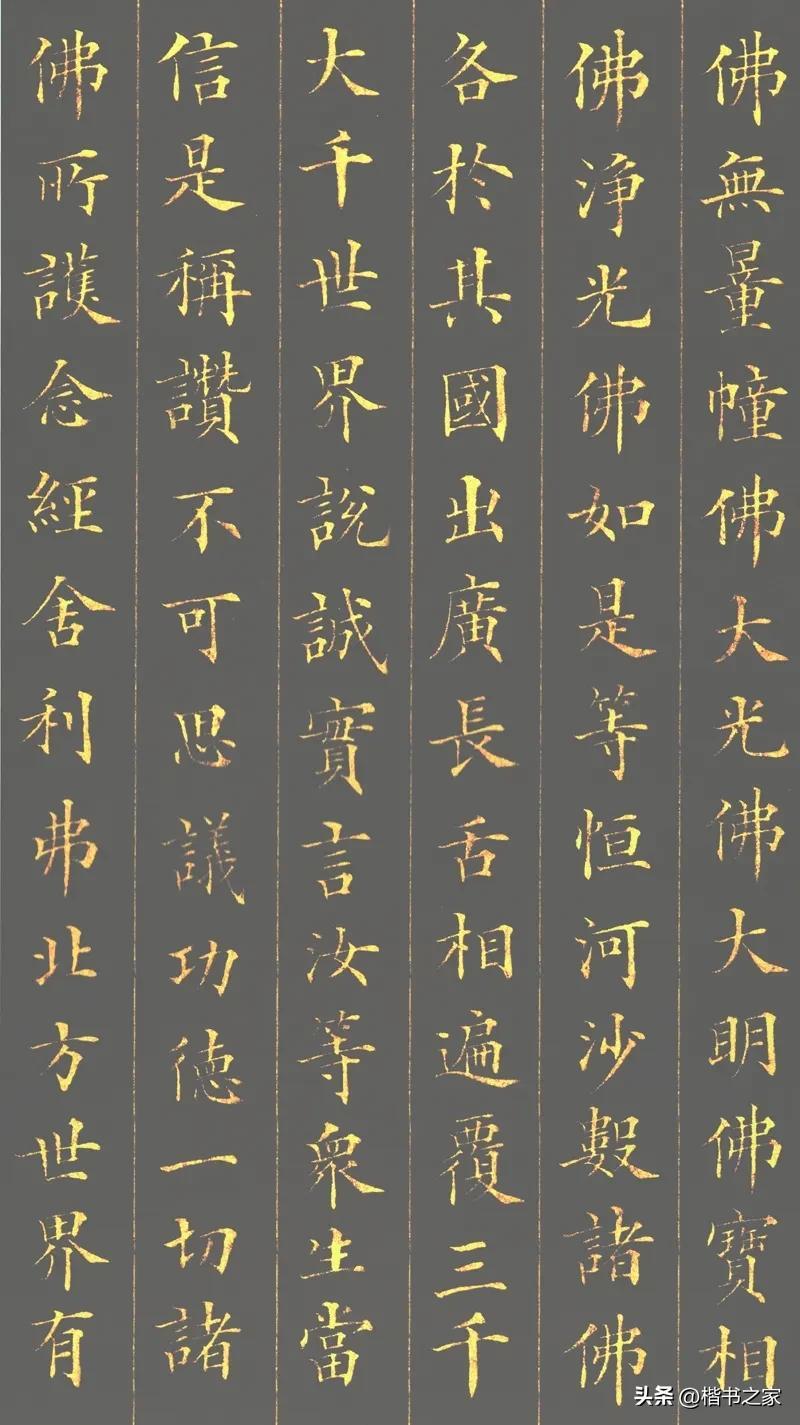 佛無量幢佛大光佛大明佛寶相
佛淨光佛如是等恒河沙數諸佛
各於其國出廣長舌相遍覆三千
大千世界說誠實言汝等衆生當
信是稱讚不可思議功德一切諸
佛所護念經舍利弗北方世界有
头条 @楷书之家